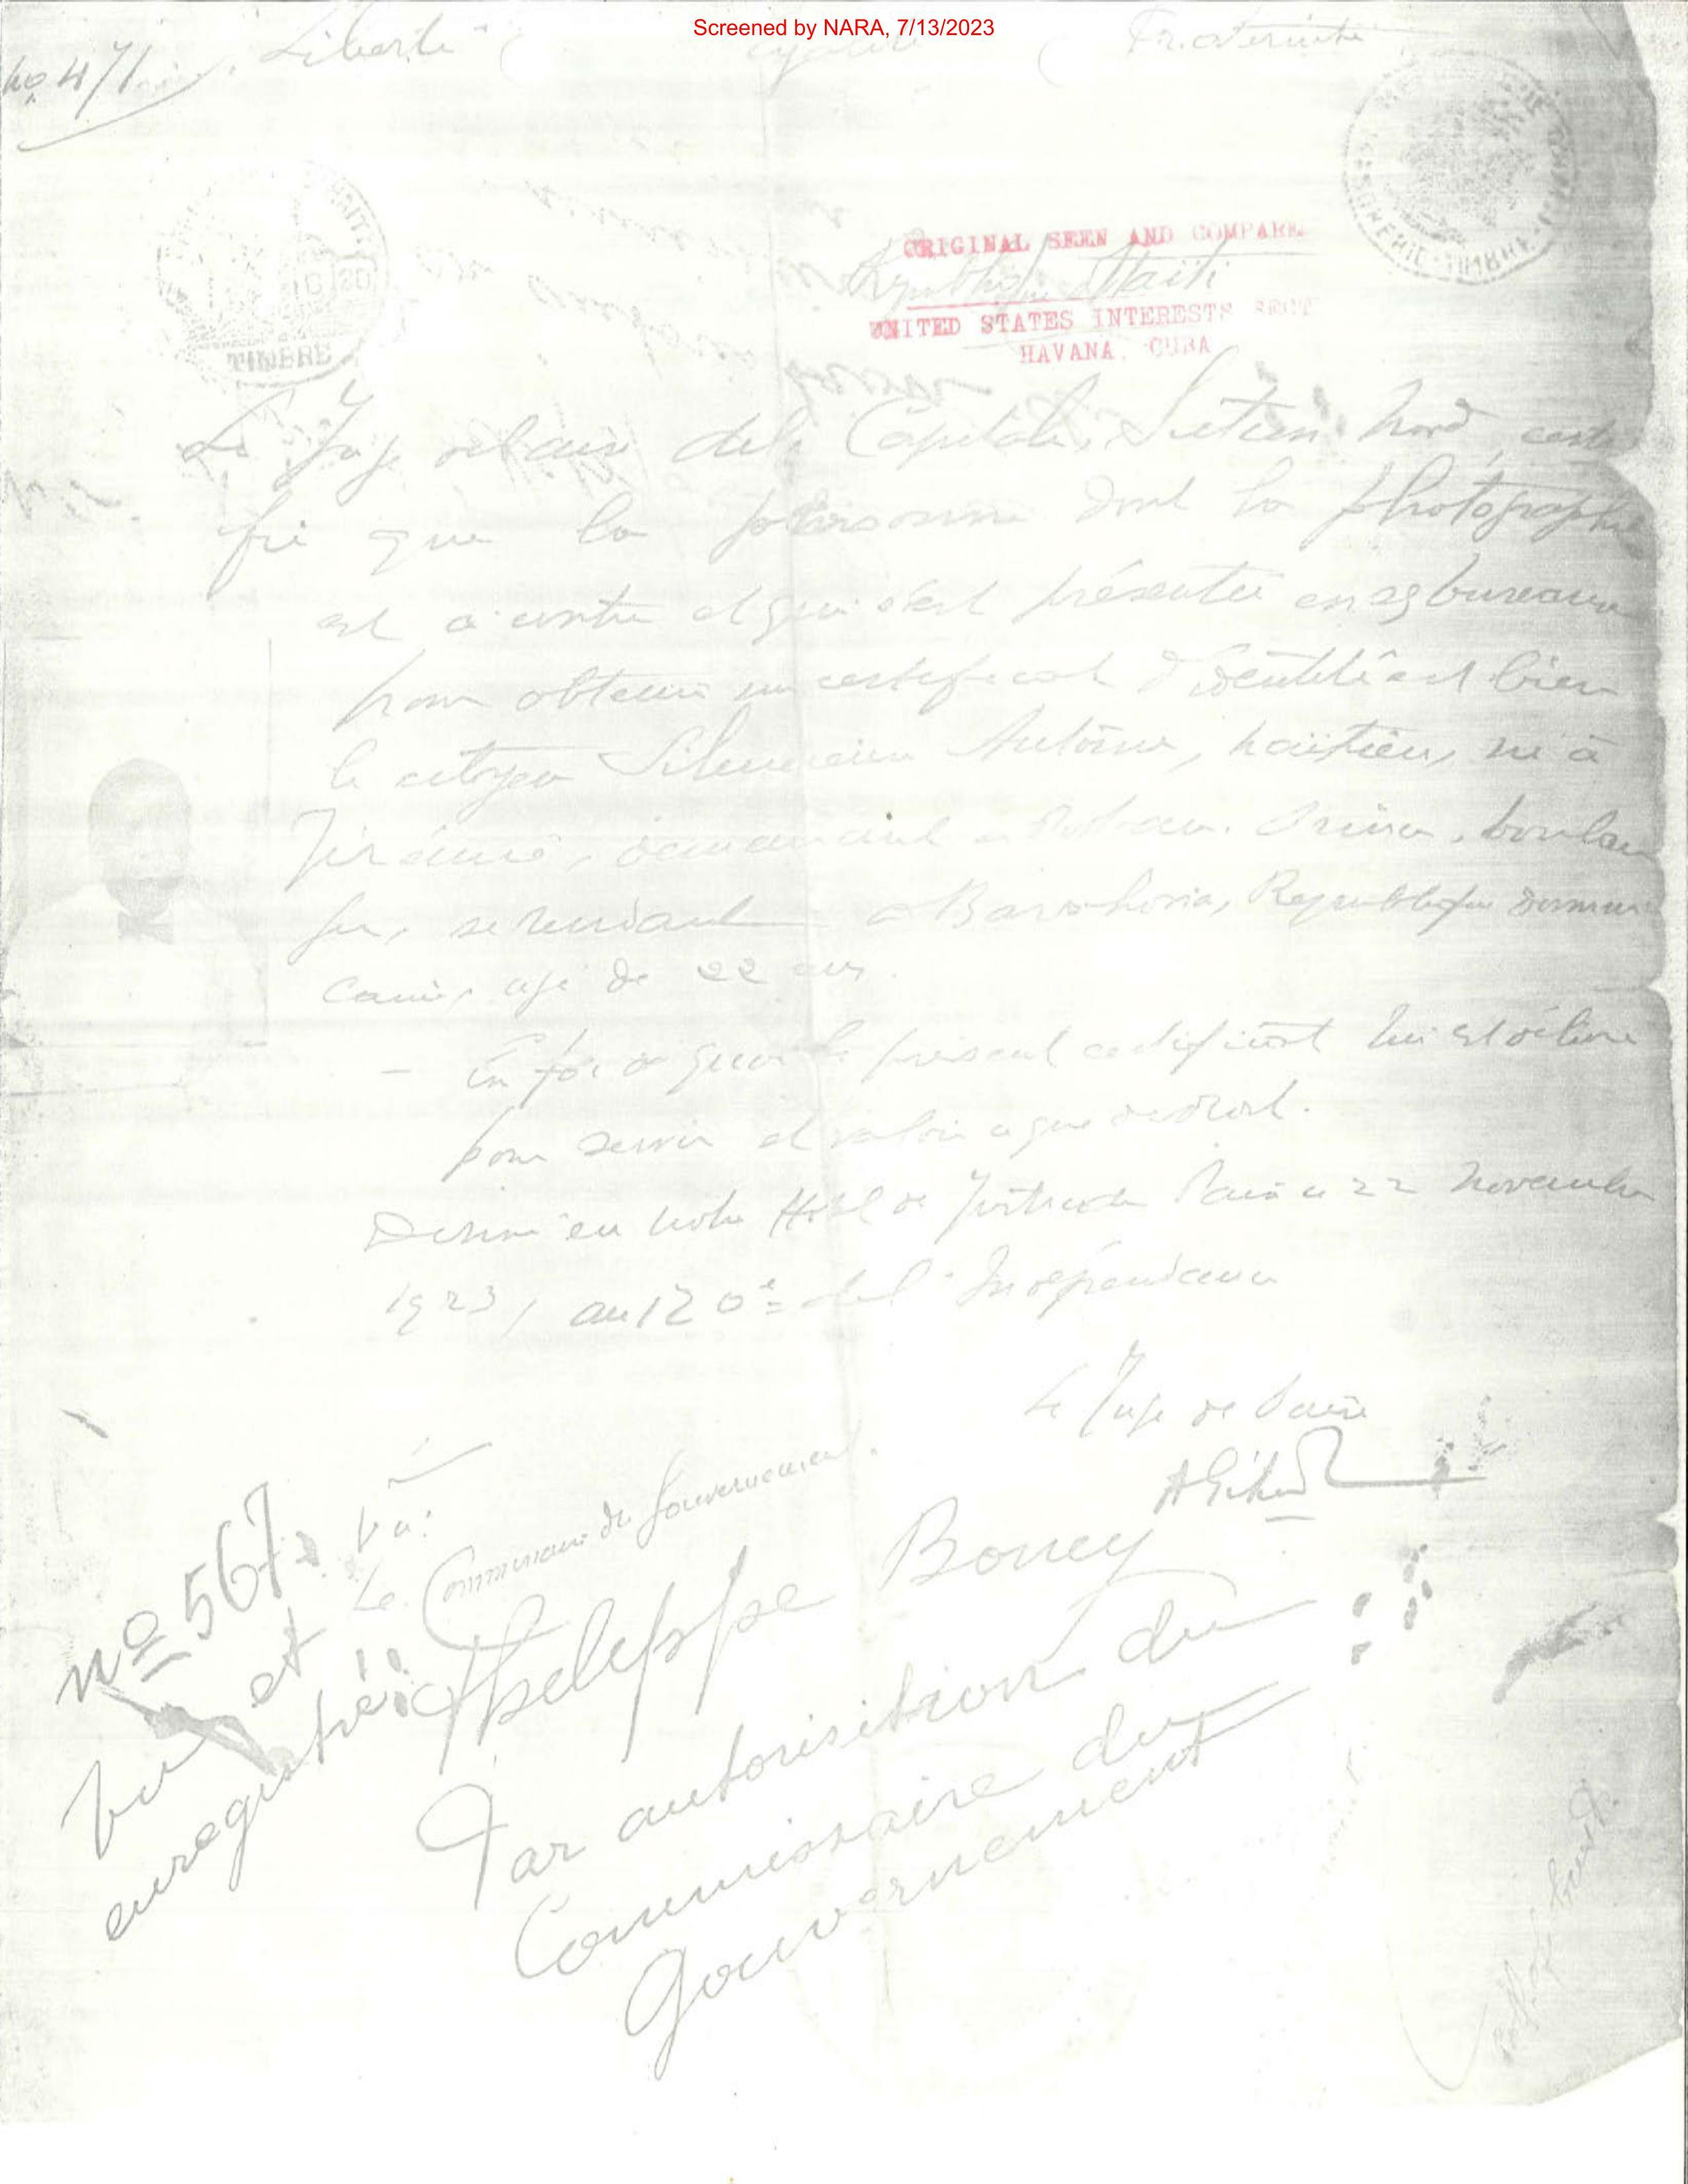 Screened by NARA, 7/13/2023
No 471 Liberté Egalité Fraternité
ORIGINAL SEEN AND COMPARE
République d'Haïti
UNITED STATES INTERESTS SECT
HAVANA, CUBA
TIMBRE
TIMBRE
Le Juge de Paix de la Capitale, Section Nord, certi
fie que la personne dont la photographie
est ci contre et qui s'est présentée en ses bureaux
pour obtenir un certificat d'identité est bien
le citoyen Antoine, haïtien, né à
Jérémie, demeurant à Port-au-Prince, boulan
ger, se rendant à Barahona, République Domini
caine, agé de 22 ans.
- En foi de quoi le présent certificat lui est délivré
pour servir et valoir ce que de droit.
Donné en notre Hôtel de Justice de Paix ce 22 Novembre
1923, au 120e de l'Indépendance
Le Juge de Paix
Vu:
Le Commissaire du Gouvernement.
No 567
Vu et
enregistré
Boney
Par autorisition du
Commissaire du
Gouvernement